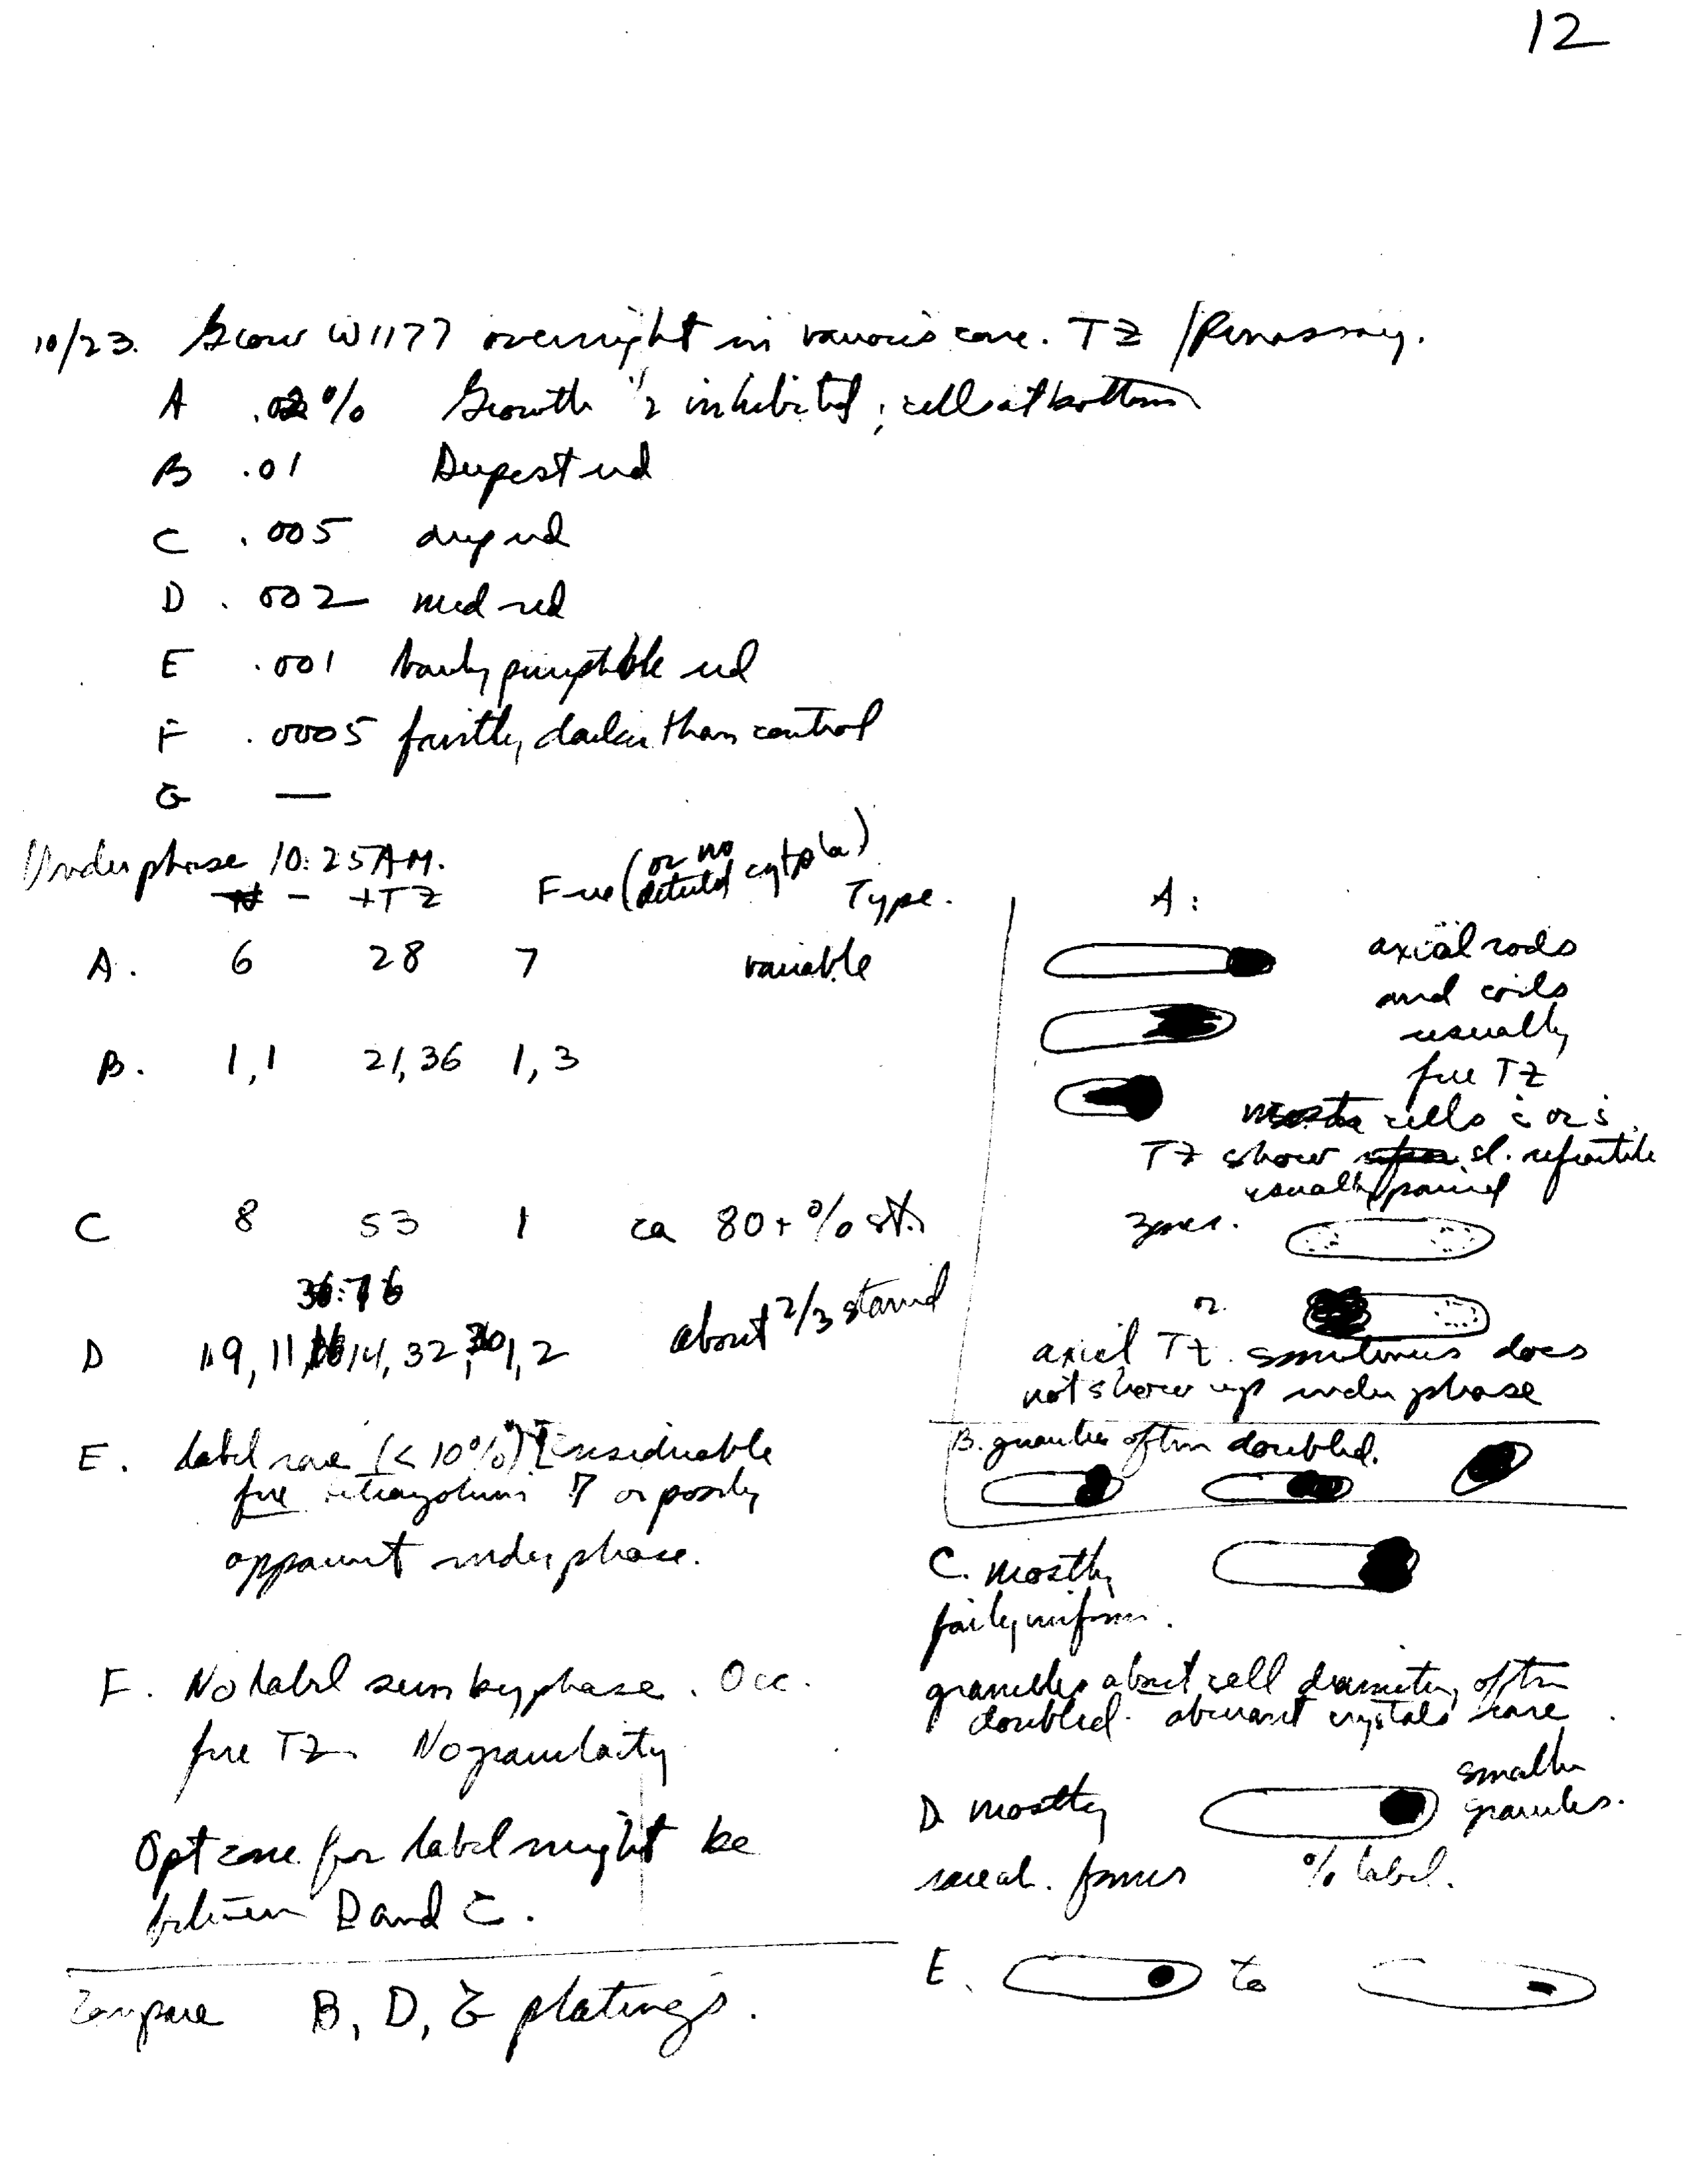 12
10/23. Grow W1177 overnight in various conc. TZ /Penassay.
A .02% Growth 1/2 inhibited; cells at bottom
B .01 Deepest red
C .005 deep red
D .002 med red
E .001 barely perceptible red
F .0005 faintly darker than control
G —
Under phase 10:25 AM.
- +TZ Free (or no detected cytopla) Type.
A. 6 28 7 variable
B. 1,1 21,36 1,3
C 8 53 1 ca 80+% st.
36:76
D 19, 11, 14, 32, 1,2 about 2/3 stained
E. Label rare (<10%) Considerable
free tetrazolium or poorly
apparent under phase.
F. No label seen by phase. Occ.
free TZ. No granularity
Opt conc for label might be
between D and C.
Compare B, D, G platings.
A:
axial rods
and coils
usually
free TZ
cells c̄ or s̄
TZ show sl. refractile
usually paired
zones.
or
axial TZ sometimes does
not show up under phase
B. granules often doubled.
C. mostly
fairly uniform.
granules about cell diameter, often
doubled. aberrant crystals rare.
D. mostly smaller
granules.
forms % label.
E. to